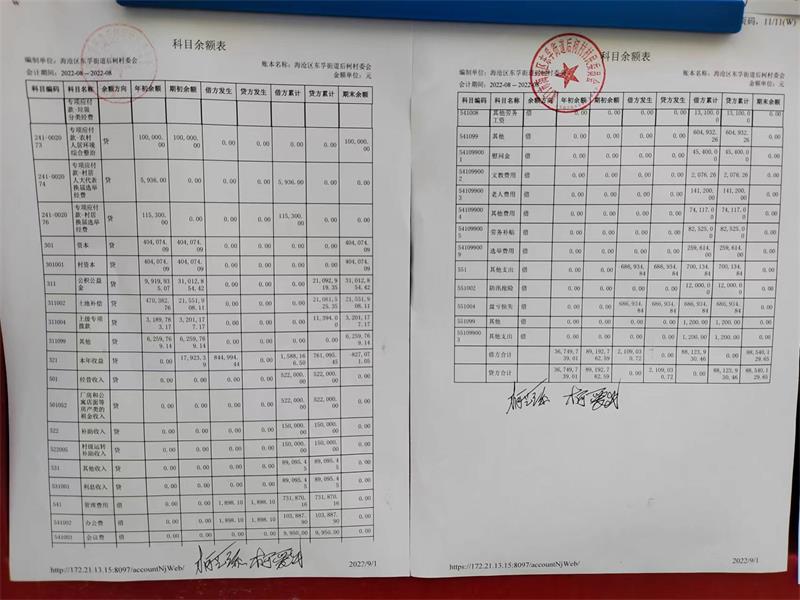 科目余额表
编制单位：海沧区东孚街道后柯村委会 账本名称：海沧区东孚街道后柯村委会
会计期间：2022-08--2022-08 金额单位：元
科目编码 科目名称 余额方向 年初余额 期初余额 借方发生 贷方发生 借方累计 贷方累计 期末余额
专项应付款-垃圾分类经费
241-002073 专项应付款-农村人居环境综合整治 贷 100,000.00 100,000.00 0.00 0.00 0.00 0.00 100,000.00
241-002074 专项应付款-村居人大代表换届选举经费 贷 5,936.00 0.00 0.00 0.00 5,936.00 0.00 0.00
241-002076 专项应付款-村居换届选举经费 贷 115,300.00 0.00 0.00 0.00 115,300.00 0.00 0.00
301 资本 贷 404,074.09 404,074.09 0.00 0.00 0.00 0.00 404,074.09
301001 村资本 贷 404,074.09 404,074.09 0.00 0.00 0.00 0.00 404,074.09
311 公积公益金 贷 9,919,935.07 31,012,854.42 0.00 0.00 0.00 21,092,919.35 31,012,854.42
311002 土地补偿 贷 470,382.76 21,551,908.11 0.00 0.00 0.00 21,081,525.35 21,551,908.11
311004 上级专项拨款 贷 3,189,783.17 3,201,177.17 0.00 0.00 0.00 11,394.00 3,201,177.17
311099 其他 贷 6,259,769.14 6,259,769.14 0.00 0.00 0.00 0.00 6,259,769.14
321 本年收益 贷 0.00 17,923.39 844,994.44 0.00 1,588,166.50 761,095.45 -827,071.05
501 经营收入 贷 0.00 0.00 0.00 0.00 522,000.00 522,000.00 0.00
501002 厂房和公寓店面等房产类的租金收入 贷 0.00 0.00 0.00 0.00 522,000.00 522,000.00 0.00
522 补助收入 贷 0.00 0.00 0.00 0.00 150,000.00 150,000.00 0.00
522005 村级运转补助收入 贷 0.00 0.00 0.00 0.00 150,000.00 150,000.00 0.00
531 其他收入 贷 0.00 0.00 0.00 0.00 89,095.45 89,095.45 0.00
531001 利息收入 贷 0.00 0.00 0.00 0.00 89,095.45 89,095.45 0.00
541 管理费用 借 0.00 0.00 1,898.10 1,898.10 731,870.16 731,870.16 0.00
541002 办公费 借 0.00 0.00 1,898.10 1,898.10 103,887.90 103,887.90 0.00
541003 会议费 借 0.00 0.00 0.00 0.00 9,950.00 9,950.00 0.00
https://172.21.13.15:8097/accountNjWeb/ 2022/9/1
页码，11/11(W)
科目余额表
编制单位：海沧区东孚街道后柯村委会 账本名称：海沧区东孚街道后柯村委会
会计期间：2022-08--2022-08 金额单位：元
科目编码 科目名称 余额方向 年初余额 期初余额 借方发生 贷方发生 借方累计 贷方累计 期末余额
541008 其他劳务工资 借 0.00 0.00 0.00 0.00 13,100.00 13,100.00 0.00
541099 其他 借 0.00 0.00 0.00 0.00 604,932.26 604,932.26 0.00
541099001 慰问金 借 0.00 0.00 0.00 0.00 45,400.00 45,400.00 0.00
541099002 文教费用 借 0.00 0.00 0.00 0.00 2,076.26 2,076.26 0.00
541099003 老人费用 借 0.00 0.00 0.00 0.00 141,200.00 141,200.00 0.00
541099004 其他费用 借 0.00 0.00 0.00 0.00 74,117.00 74,117.00 0.00
541099005 劳务补贴 借 0.00 0.00 0.00 0.00 82,525.00 82,525.00 0.00
541099009 选举费用 借 0.00 0.00 0.00 0.00 259,614.00 259,614.00 0.00
551 其他支出 借 0.00 0.00 686,934.84 686,934.84 700,134.84 700,134.84 0.00
551002 防汛抢险 借 0.00 0.00 0.00 0.00 12,000.00 12,000.00 0.00
551004 盘亏损失 借 0.00 0.00 686,934.84 686,934.84 686,934.84 686,934.84 0.00
551099 其他 借 0.00 0.00 0.00 0.00 1,200.00 1,200.00 0.00
551099003 其他支出 借 0.00 0.00 0.00 0.00 1,200.00 1,200.00 0.00
借方合计 36,749,739.01 89,192,762.59 2,109,030.72 0.00 88,123,930.46 0.00 88,540,129.65
贷方合计 36,749,739.01 89,192,762.59 0.00 2,109,030.72 0.00 88,123,930.46 88,540,129.65
https://172.21.13.15:8097/accountNjWeb/ 2022/9/1